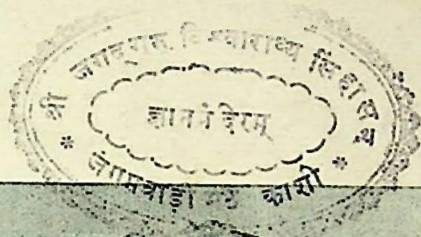 श्री जगद्गुरु विश्वाराध्य
ज्ञानमंदिरम्
* जंगमवाड़ी काशी *